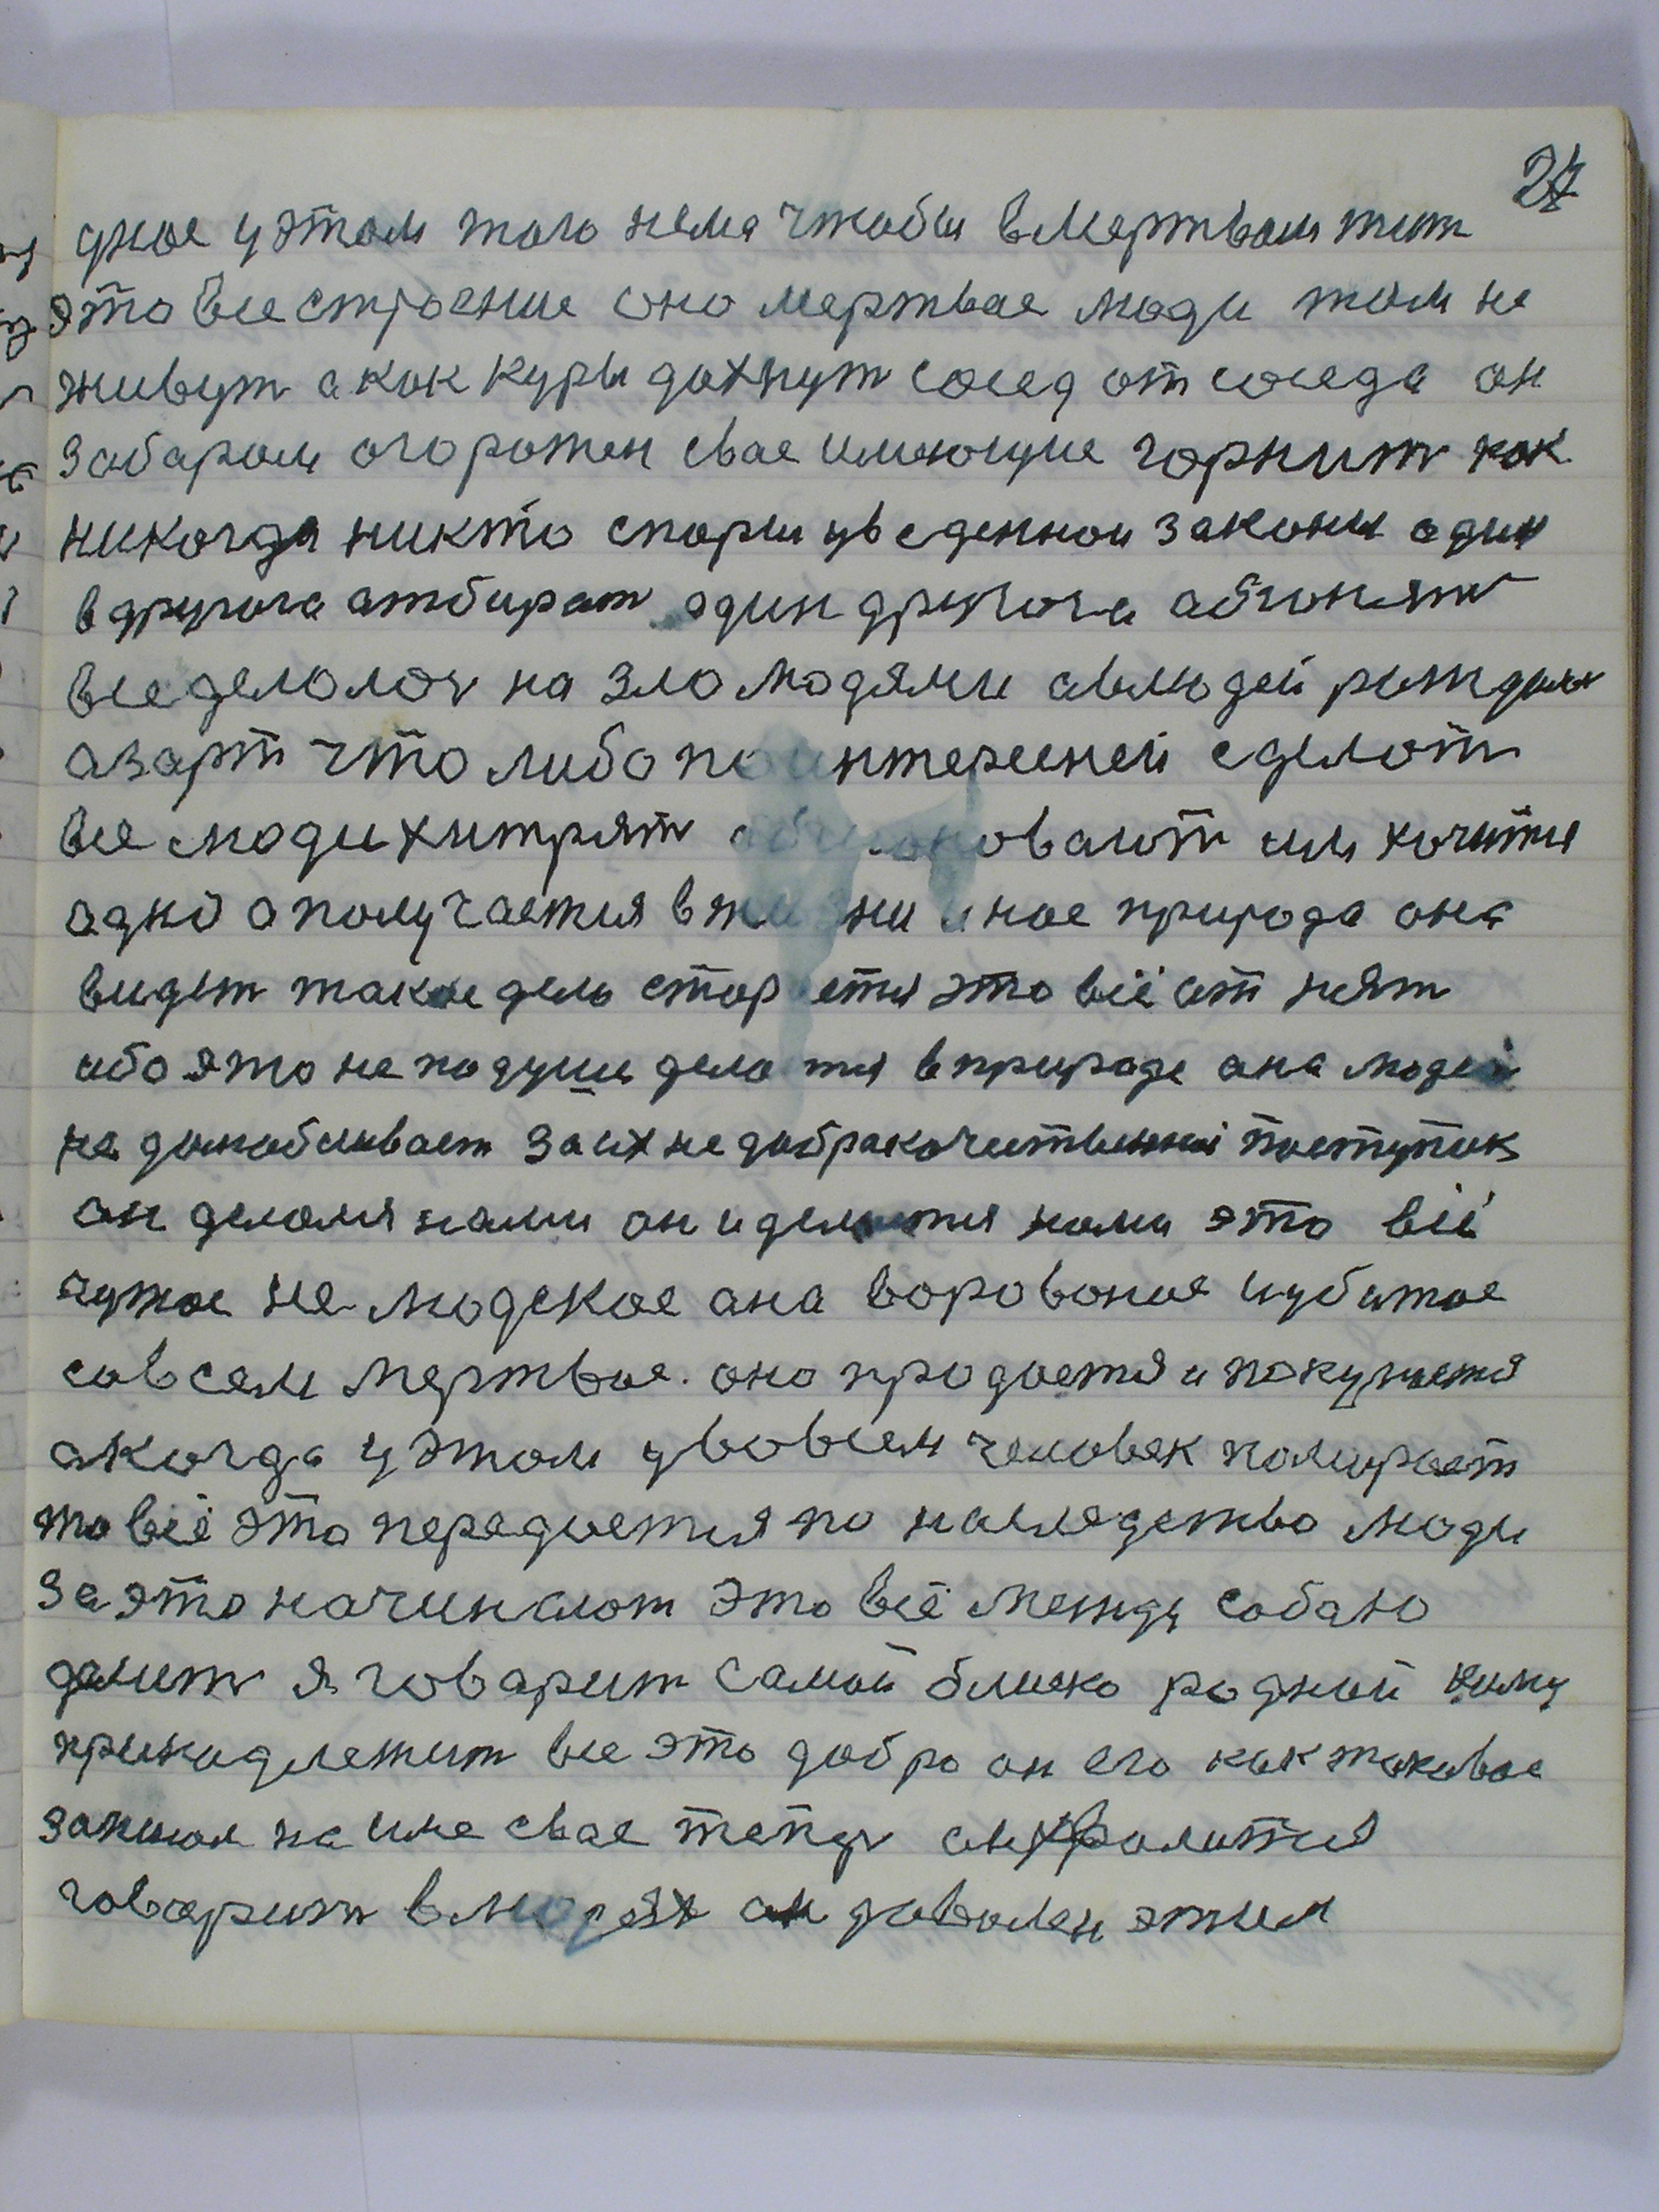 27
дное у этом того нема чтобы в мертвом жит
это все строение оно мертвае люди там не
живут а как куры дохнут сосед от соседа он
забаром огорожен свае имеющие горнит как
никогда никто спорш уведенной законы один
в другога атбират один другога абгонят
все делолос на зло людями а в людей рождался
азарт что либо поинтересней сделат
все люди хитрят им хочится
адно а получается в жизни иное природа она
видет такие дела стараетя это всё атнят
ибо это не подуши делатся в природе ана людей
не данабливает за их недобракачественный паступак
он делался нами он и делается нами это всё
чужое не людское ана варованое и убитое
савсем мертвое. оно продается и покупается
а когда у этом у вовсем человек помирает
то всё это передается по наследство люди
за это начинают это всё между сабаю
делит я говарит самый близко родный киму
принадлежит все это добро он его как таковое
занимал на име свае типер он хвалится
говарит в людях он даволен этим